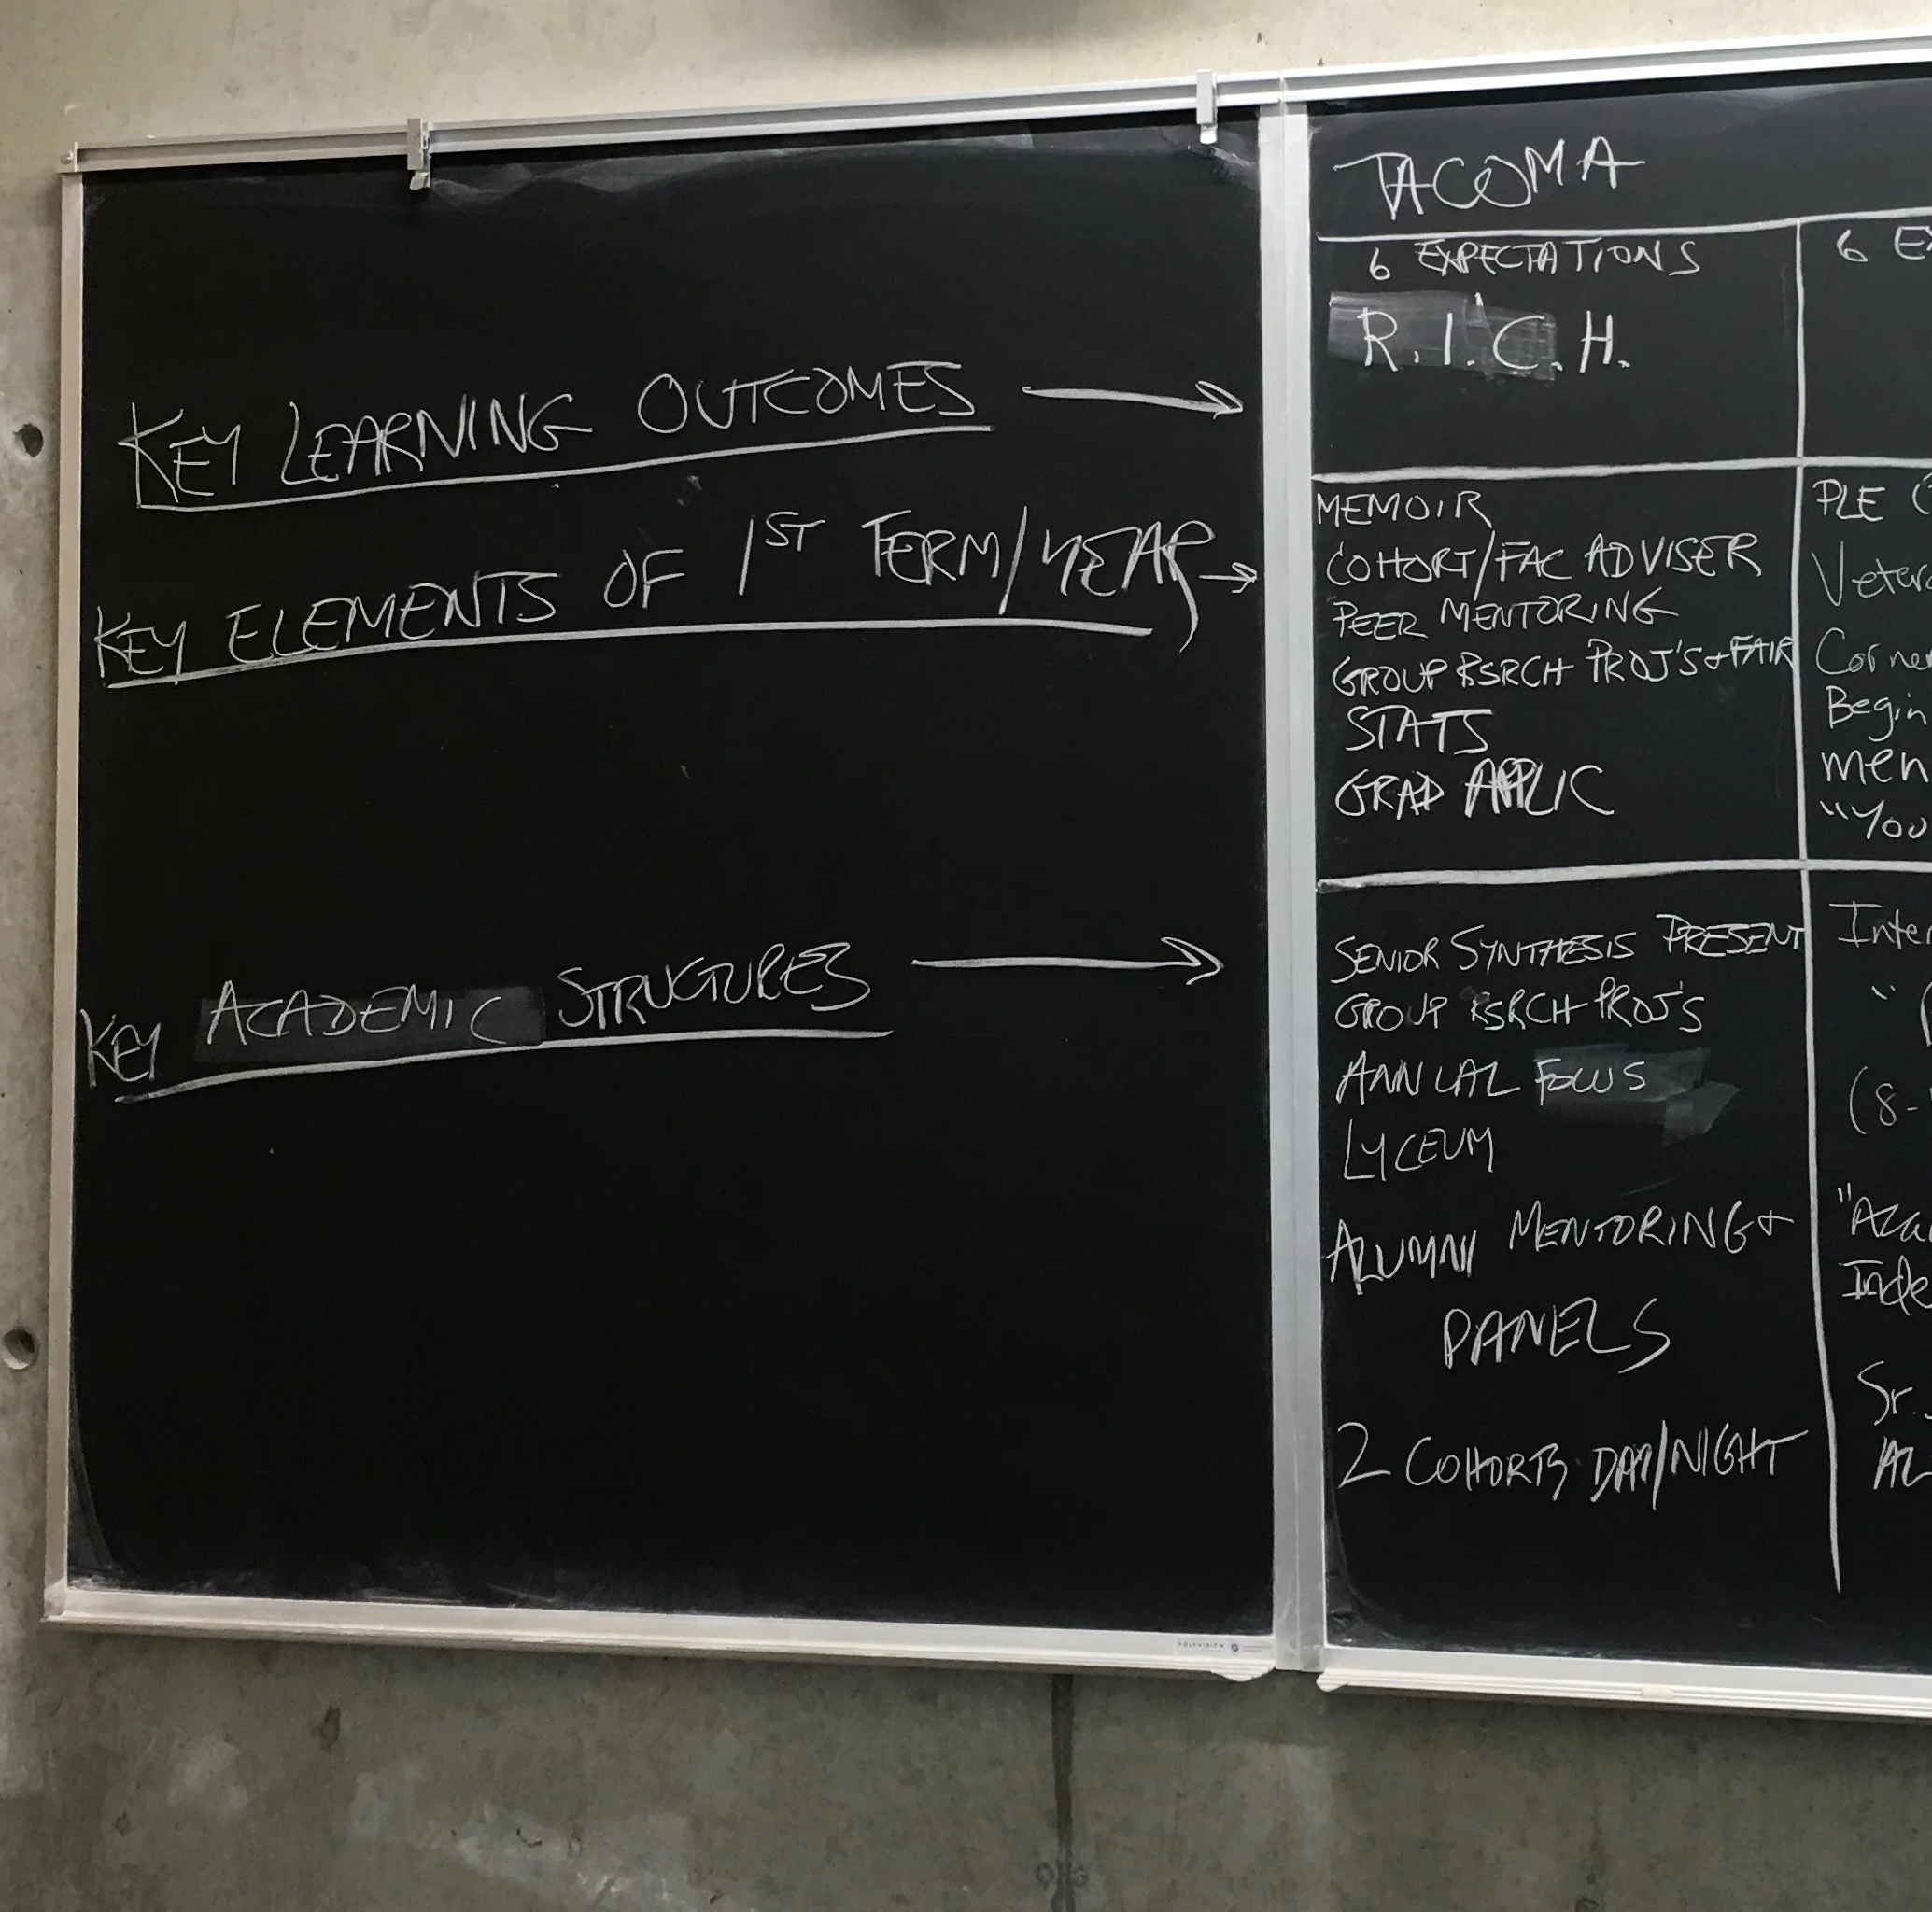 KEY LEARNING OUTCOMES →
KEY ELEMENTS OF 1ST TERM/YEAR →
KEY ACADEMIC STRUCTURES →
TACOMA
6 EXPECTATIONS
R.I.C.H.
MEMOIR
COHORT/FAC ADVISER
PEER MENTORING
GROUP RSRCH PROJ'S + FAIR
STATS
GRAD APPLIC
SENIOR SYNTHESIS PRESENT
GROUP RSRCH PROJ'S
ANNUAL FOCUS
LYCEUM
ALUMNI MENTORING +
PANELS
2 COHORTS DAY/NIGHT
6 EX
PLE (
Veter
Corne
Begin
men
"You
Inter
" (
(8-
"Aca
Inde
Sr.
AL
POLYVISION